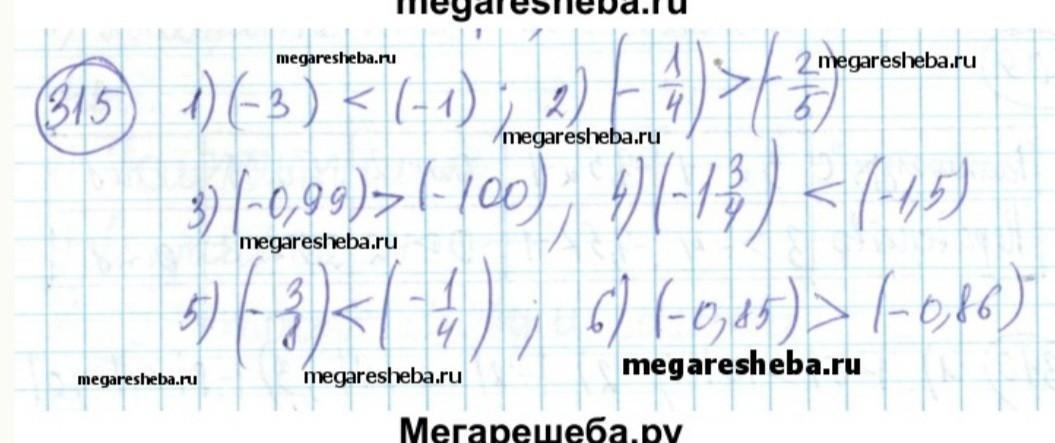 megaresheba.ru
megaresheba.ru
315 1) (-3) < (-1); 2) (-1/4) > (-2/5)
megaresheba.ru
megaresheba.ru
3) (-0,99) > (-100), 4) (-1 3/4) < (-1,5)
megaresheba.ru
5) (-3/8) < (-1/4); 6) (-0,85) > (-0,86)
megaresheba.ru
megaresheba.ru
megaresheba.ru
Мегарешеба.ру